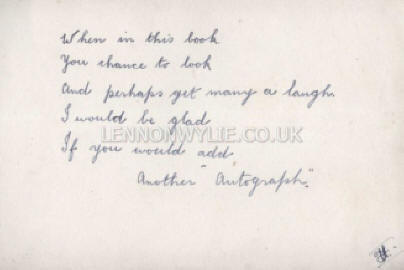 When in this book
You chance to look
And perhaps get many a laugh.
I would be glad
LENNONWYLIE.CO.UK
If you would add,
Another "Autograph".